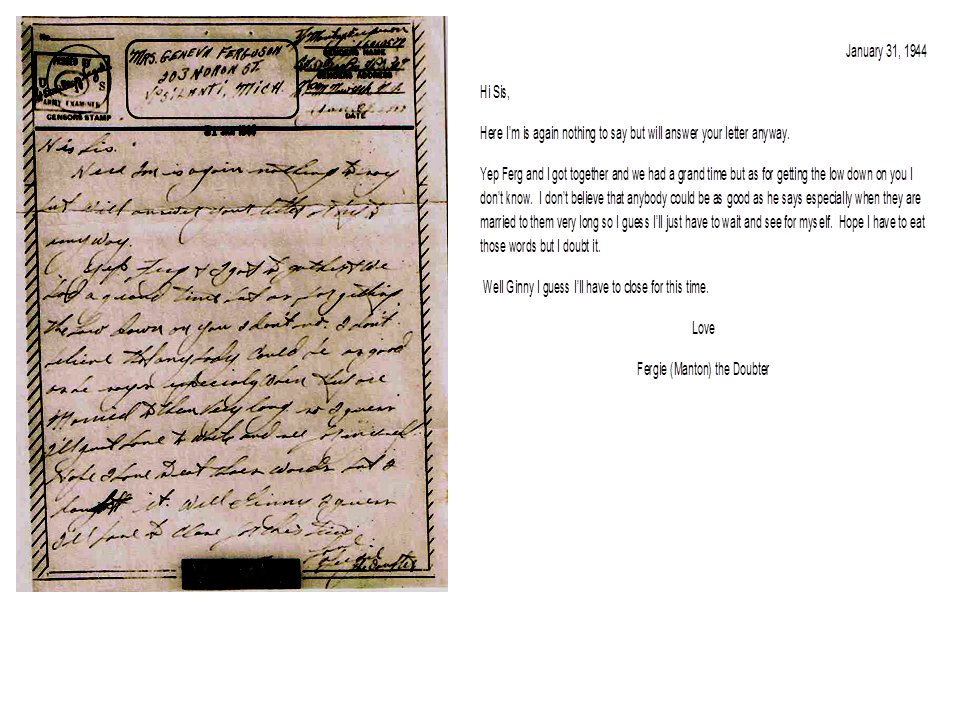 No.
CENSOR'S STAMP
ARMY EXAMINER
MRS. GENEVA FERGUSON
203 NORON ST.
YPSILANTI, MICH.
SENDER'S NAME
SENDER'S ADDRESS
DATE
31 JAN 1944
Hi Sis.
Here Im is again nothing to say
but will answer your letter
anyway.
Yep Ferg & I got together & We
had a grand time but as for getting
the low down on you I don't no. I don't
believe that anybody could be as good
as he says especialy When they are
Married to them Very long so I guess
I'll just have to waite and see for myself
Hope I have to eat those words but I
it. Well Ginny I guess
I'll have to close for this time.
Love
Fergie
the doubter
January 31, 1944
Hi Sis,
Here I'm is again nothing to say but will answer your letter anyway.
Yep Ferg and I got together and we had a grand time but as for getting the low down on you I
don't know. I don't believe that anybody could be as good as he says especially when they are
married to them very long so I guess I'll just have to wait and see for myself. Hope I have to eat
those words but I doubt it.
Well Ginny I guess I'll have to close for this time.
Love
Fergie (Manton) the Doubter